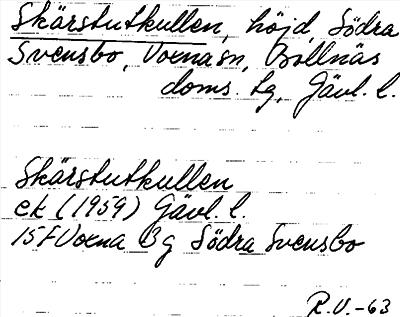 Skärstutkullen, höjd, Södra
Svensbo, Voxna sn, Bollnäs
doms. lg, Gävl. l.
Skärstutkullen
ek (1959) Gävl. l.
15F Voxna 3g Södra Svensbo
R.V. -63